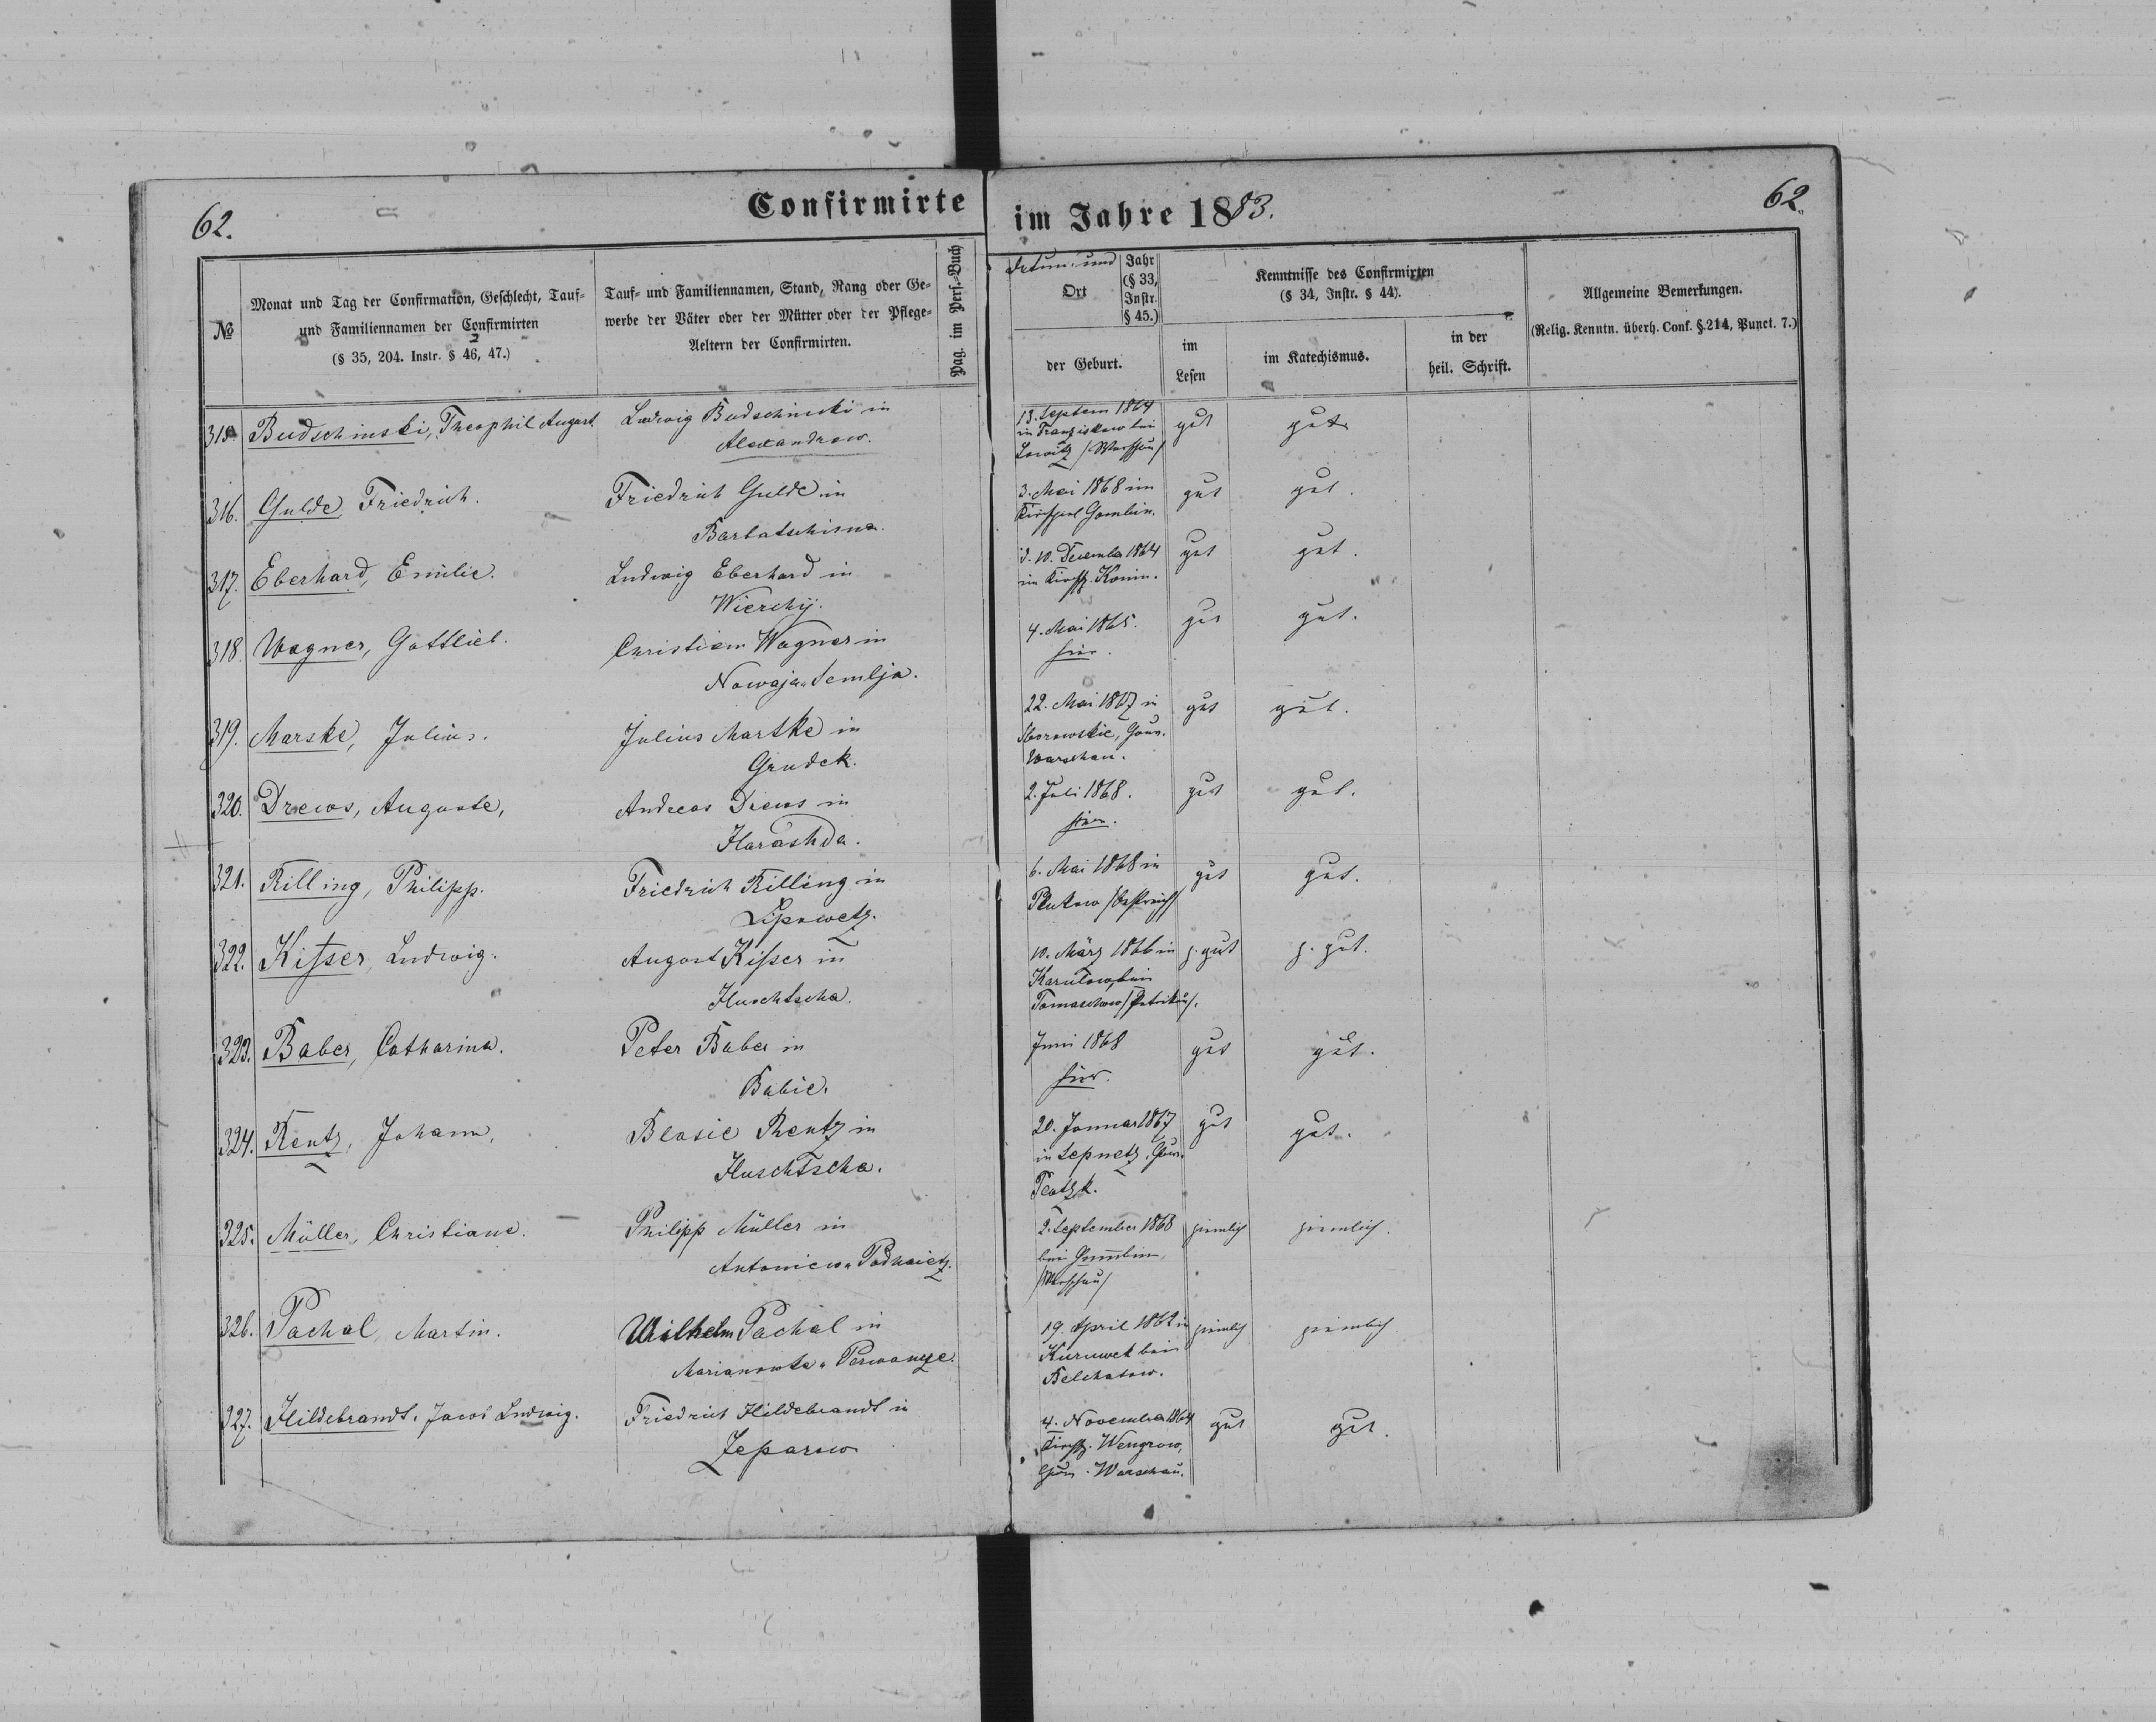 62.
Confirmirte
im Jahre 1883.
62.
№
Monat und Tag der Confirmation, Geschlecht, Tauf-
und Familiennamen der Confirmirten
(§ 35, 204. Instr. § 46, 47.)
Tauf- und Familiennamen, Stand, Rang oder Ge-
werbe der Väter oder der Mütter oder der Pflege-
Aeltern der Confirmirten.
Pag. im Pers.-Buch
Datum und
Ort
Jahr
(§ 33,
Instr.
§ 45.)
der Geburt.
Kenntnisse des Confirmirten
(§ 34, Instr. § 44).
im
Lesen
im Katechismus.
in der
heil. Schrift.
Allgemeine Bemerkungen.
(Relig. Kenntn. überh. Conf. §.214, Punct. 7.)
315. Budschinski, Theophil August.
Ludwig Budschinski in
Alexandrow.
13. Septem 1864
in Franziskow bei
Lowitz /Warschau/
gut
gut
316. Gulde Friedrich.
Friedrich Gulde in
Barbatschisna.
3. Mai 1868 im
Kirchspiel Gombin.
gut
gut.
317. Eberhard, Emilie.
Ludwig Eberhard in
Wierchy.
d. 10. December 1864
im Kirchsp. Konin.
gut
gut.
318. Wagner, Gottlieb.
Christian Wagner in
Nowaja Semlja.
4. Mai 1865.
hier.
gut
gut.
319. Marske, Julius.
Julius Martke in
Grudek.
22. Mai 1867 in
Gouv.
Warschau.
gut
gut.
320. Drews, Auguste,
Andreas Drews in
Harashda.
2. Juli 1868.
hier.
gut
gut.
321. Rilling, Philipp.
Friedrich Rilling in
Lipowetz.
6. Mai 1868 in
/Östreich/
gut
gut.
322. Kisser, Ludwig.
August Kisser in
Huschtscha.
10. März 1866 in
bei
Tomaschow /Petrikau/.
z. gut
z. gut.
323. Baber, Catharina.
Peter Baber in
Babie.
Juni 1868
hier.
gut
gut.
324. Rentz, Johann,
Blasie Rentz in
Huschtscha.
20. Januar 1867
in Lepnetz, Gouv.
Plotzk.
gut
gut.
325. Müller, Christiane.
Philipp Müller in
Antoniew
2. September 1868
bei Gombin,
/Warschau/
ziemlich
ziemlich.
326. Pachal, Martin.
Wilhelm Pachal in
Marianowka
19. April 1862 in
bei
Belchatow.
ziemlich
ziemlich
327. Hildebrandt, Jacob Ludwig.
Friedrich Hildebrandt in
Zeparow
4. November 1864
Kirchsp. Wengrow,
Gouv. Warschau.
gut
gut.